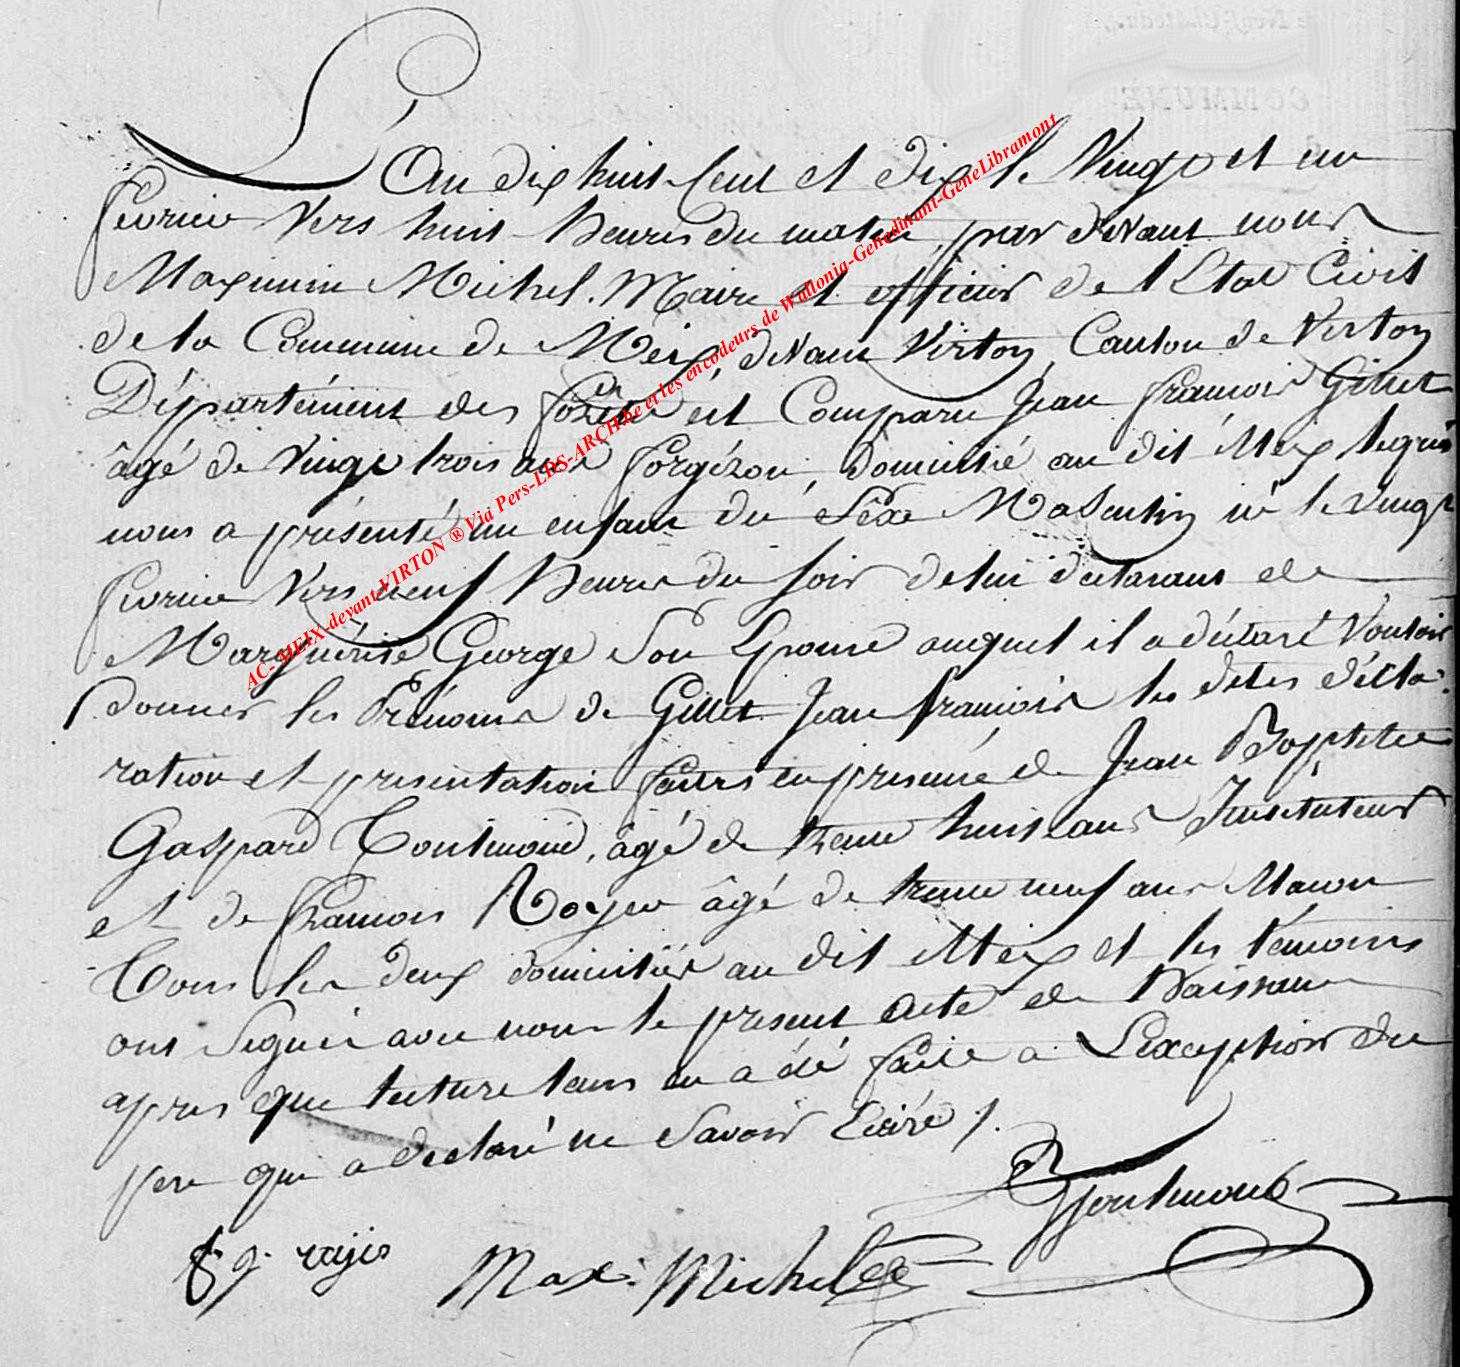 L'An dix huit Cent et dix le Vingt et un
fevrier Vers huit heures du matin, par devant nous
Maximin Michel. Maire et officier de l'Etat Civil
de la Commune de Meix, devant Virton, Canton de Virton
Département des forêts, est Comparu Jean francois Gillet
âgé de Vingt trois ans forgéron, domicilié au dit Meix lequel
nous a présenté un enfant du Séxe Masculin né le Vingt
fevrier Vers neuf heures du soir de lui déclarant et de
Marguérite George Son Epouse auquel il a déclaré Vouloir
donner les Prénoms de Gillet Jean francois les dites décla-
ration et presentation faites en presence de Jean Baptiste
Gaspard, âgé de trente huit ans Instituteur
et de francois Royer âgé de trente neuf ans Macon
Tous les deux domiciliés au dit Meix et les témoins
ont Signés avec nous le present acte de Naissance
apres que lecture leur en a été faite a L'exception du
pere qui a declaré ne Savoir Ecrire /.
Max: Michel
AC- MEIX-devant-VIRTON ® Via Pers-LDS-ARCH.be et les encodeurs de Wallonia-Genedinant-GeneLibramont
COMMUNE